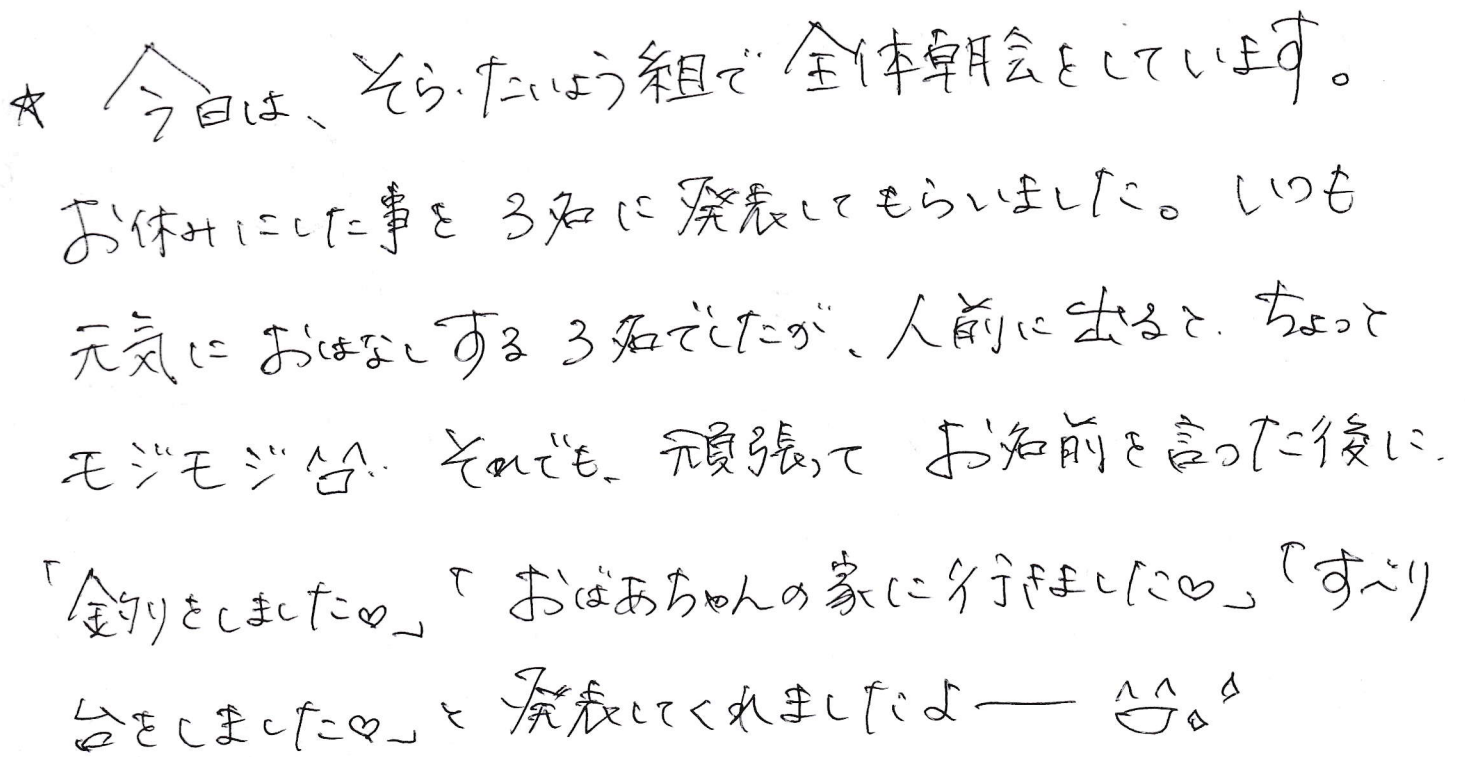 ☆ 今日は、そら・たいよう組で全体朝会をしています。
お休みにした事を3名に発表してもらいました。いつも
元気におはなしする3名でしたが、人前に出ると、ちょっと
モジモジ^^;それでも、頑張ってお名前を言った後に、
「釣りをしました♡」「おばあちゃんの家に行きました♡」「すべり
台をしました♡」と発表してくれましたよ──^^。